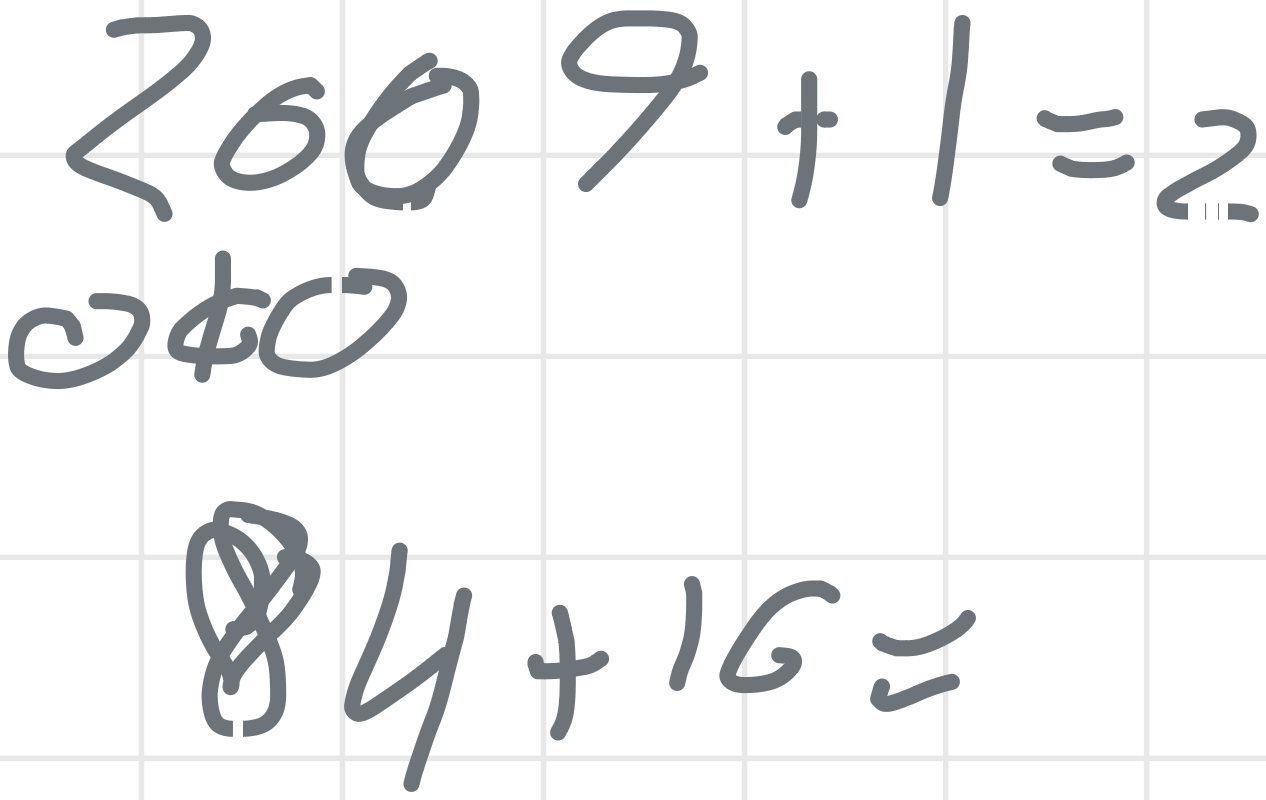 2009 + 1 = 2
010
84 + 16 =